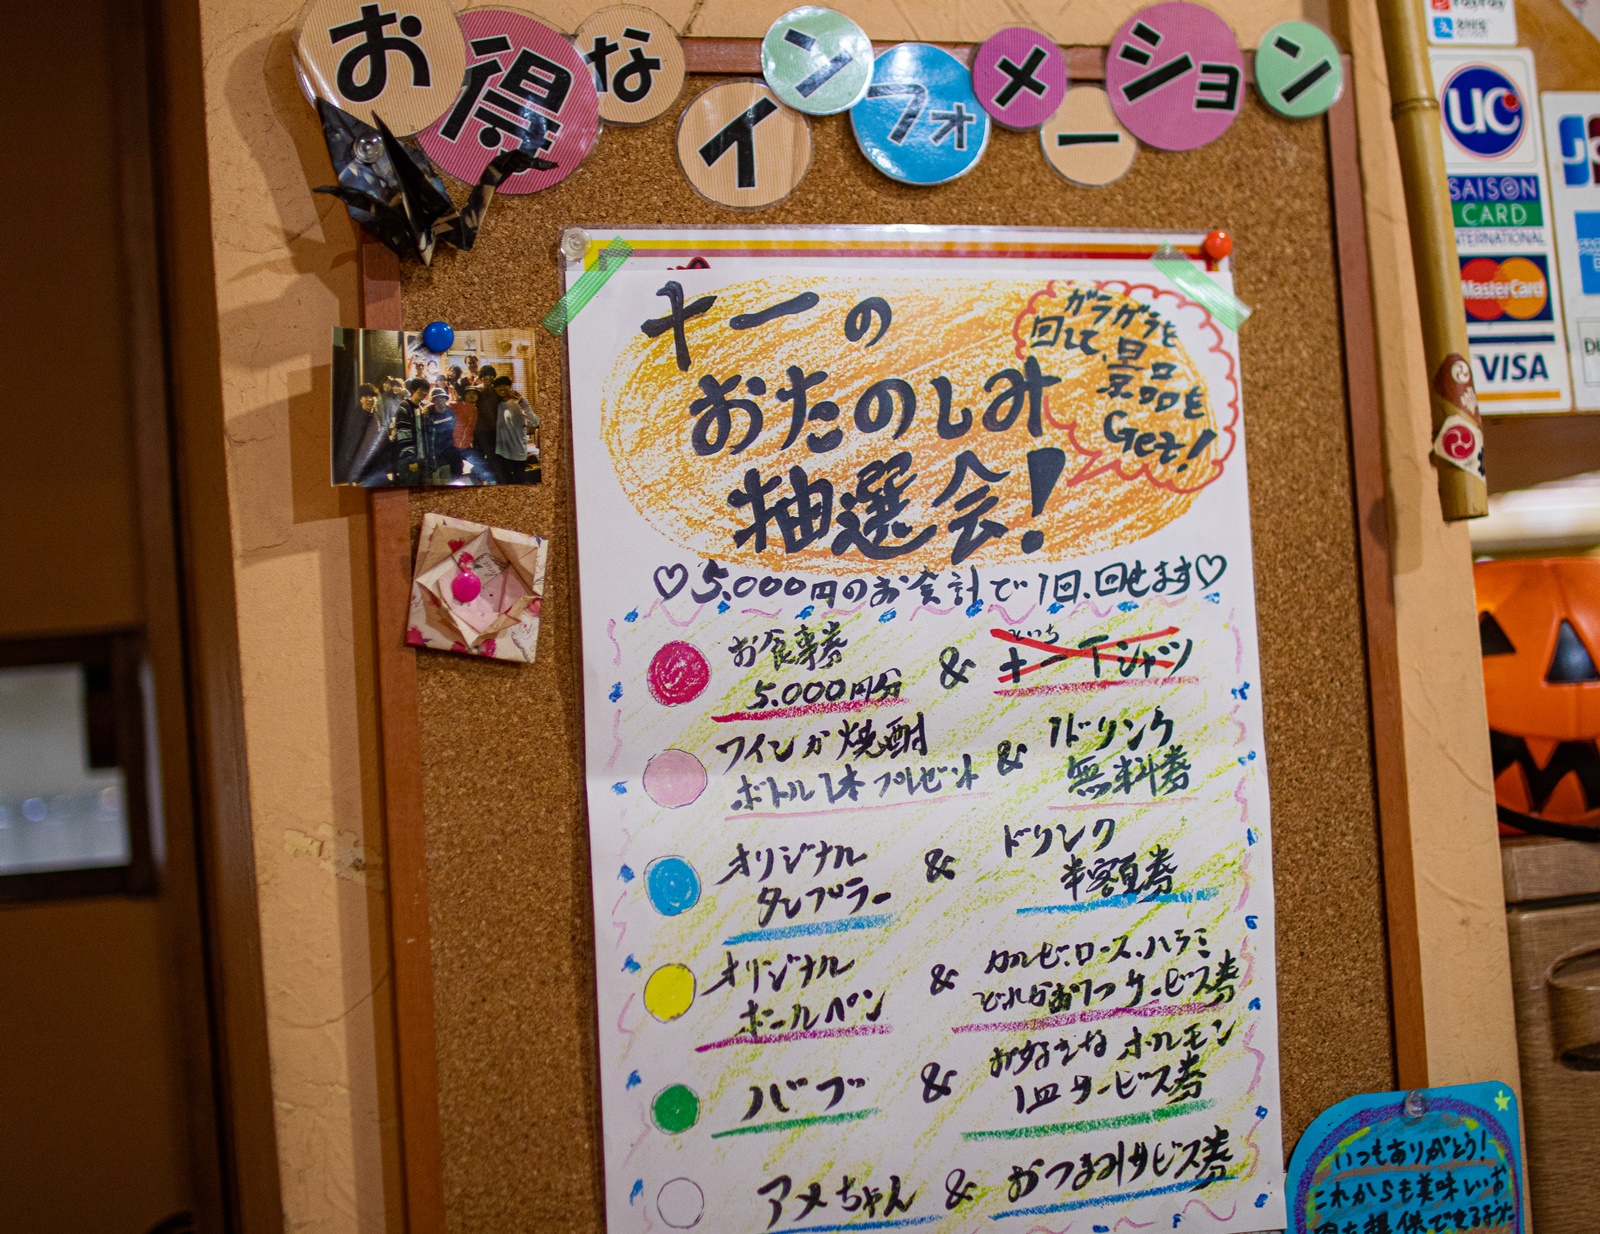 お得なインフォメーション
十一の
おたのしみ
抽選会!
ガラガラを
回して、景品
景品を
Get!
♡5,000円のお会計で1回、回せます♡
お食事券
5,000円分
&
といち
十一Tシャツ
ワインか焼酎
ボトル1本プレゼント
&
1ドリンク
無料券
オリジナル
タンブラー
&
ドリンク
半額券
オリジナル
ボールペン
&
カルビ、ロース、ハラミ
どれかお1つサービス券
バブ
&
お好きなホルモン
1皿サービス券
アメちゃん & おつまみサービス券
いつもありがとう!
これからも美味しいお
肉を提供できるように
UC
SAISON
CARD
INTERNATIONAL
MasterCard
VISA